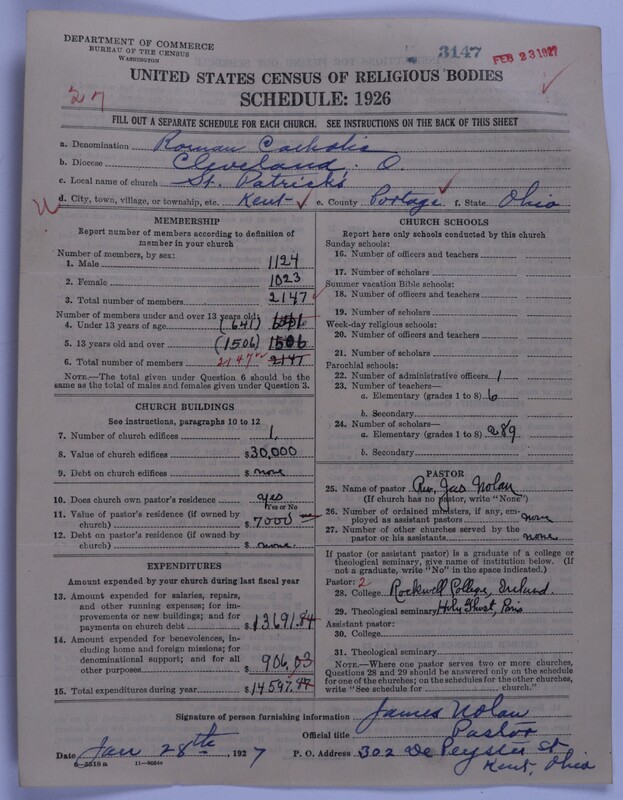 DEPARTMENT OF COMMERCE
BUREAU OF THE CENSUS
WASHINGTON
3147
FEB 23 1927
27
UNITED STATES CENSUS OF RELIGIOUS BODIES
SCHEDULE: 1926
FILL OUT A SEPARATE SCHEDULE FOR EACH CHURCH. SEE INSTRUCTIONS ON THE BACK OF THIS SHEET
a. Denomination Roman Catholic
b. Diocese Cleveland. O.
c. Local name of church St. Patrick's
d. City, town, village, or township, etc. Kent e. County Portage f. State Ohio
MEMBERSHIP
Report number of members according to definition of
member in your church
Number of members, by sex:
1. Male 1124
2. Female 1023
3. Total number of members 2147
Number of members under and over 13 years old:
4. Under 13 years of age (641)
5. 13 years old and over (1506) 1506
6. Total number of members 2147 2147
NOTE.—The total given under Question 6 should be the
same as the total of males and females given under Question 3.
CHURCH BUILDINGS
See instructions, paragraphs 10 to 12
7. Number of church edifices 1
8. Value of church edifices $30,000
9. Debt on church edifices $ none
10. Does church own pastor's residence yes
Yes or No
11. Value of pastor's residence (if owned by
church) $7000
12. Debt on pastor's residence (if owned by
church) $ none
EXPENDITURES
Amount expended by your church during last fiscal year
13. Amount expended for salaries, repairs,
and other running expenses; for im-
provements or new buildings; and for
payments on church debt $13691.84
14. Amount expended for benevolences, in-
cluding home and foreign missions; for
denominational support; and for all
other purposes $906.03
15. Total expenditures during year $14597.87
CHURCH SCHOOLS
Report here only schools conducted by this church
Sunday schools:
16. Number of officers and teachers
17. Number of scholars
Summer vacation Bible schools:
18. Number of officers and teachers
19. Number of scholars
Week-day religious schools:
20. Number of officers and teachers
21. Number of scholars
Parochial schools:
22. Number of administrative officers 1
23. Number of teachers—
a. Elementary (grades 1 to 8) 6
b. Secondary
24. Number of scholars—
a. Elementary (grades 1 to 8) 289
b. Secondary
PASTOR
25. Name of pastor Rev. Jas Nolan
(If church has no pastor, write "None")
26. Number of ordained ministers, if any, em-
ployed as assistant pastors none
27. Number of other churches served by the
pastor or his assistants none
If pastor (or assistant pastor) is a graduate of a college or
theological seminary, give name of institution below. (If
not a graduate, write "No" in the space indicated.)
Pastor: 2
28. College Rockwell College, Ireland.
29. Theological seminary Holy Ghost, Paris
Assistant pastor:
30. College
31. Theological seminary
NOTE.—Where one pastor serves two or more churches,
Questions 28 and 29 should be answered only on the schedule
for one of the churches; on the schedules for the other churches,
write "See schedule for church."
Signature of person furnishing information James Nolan
Official title Pastor
Date Jan 28th, 1927 P. O. Address 302 De Peyster St
Kent, Ohio